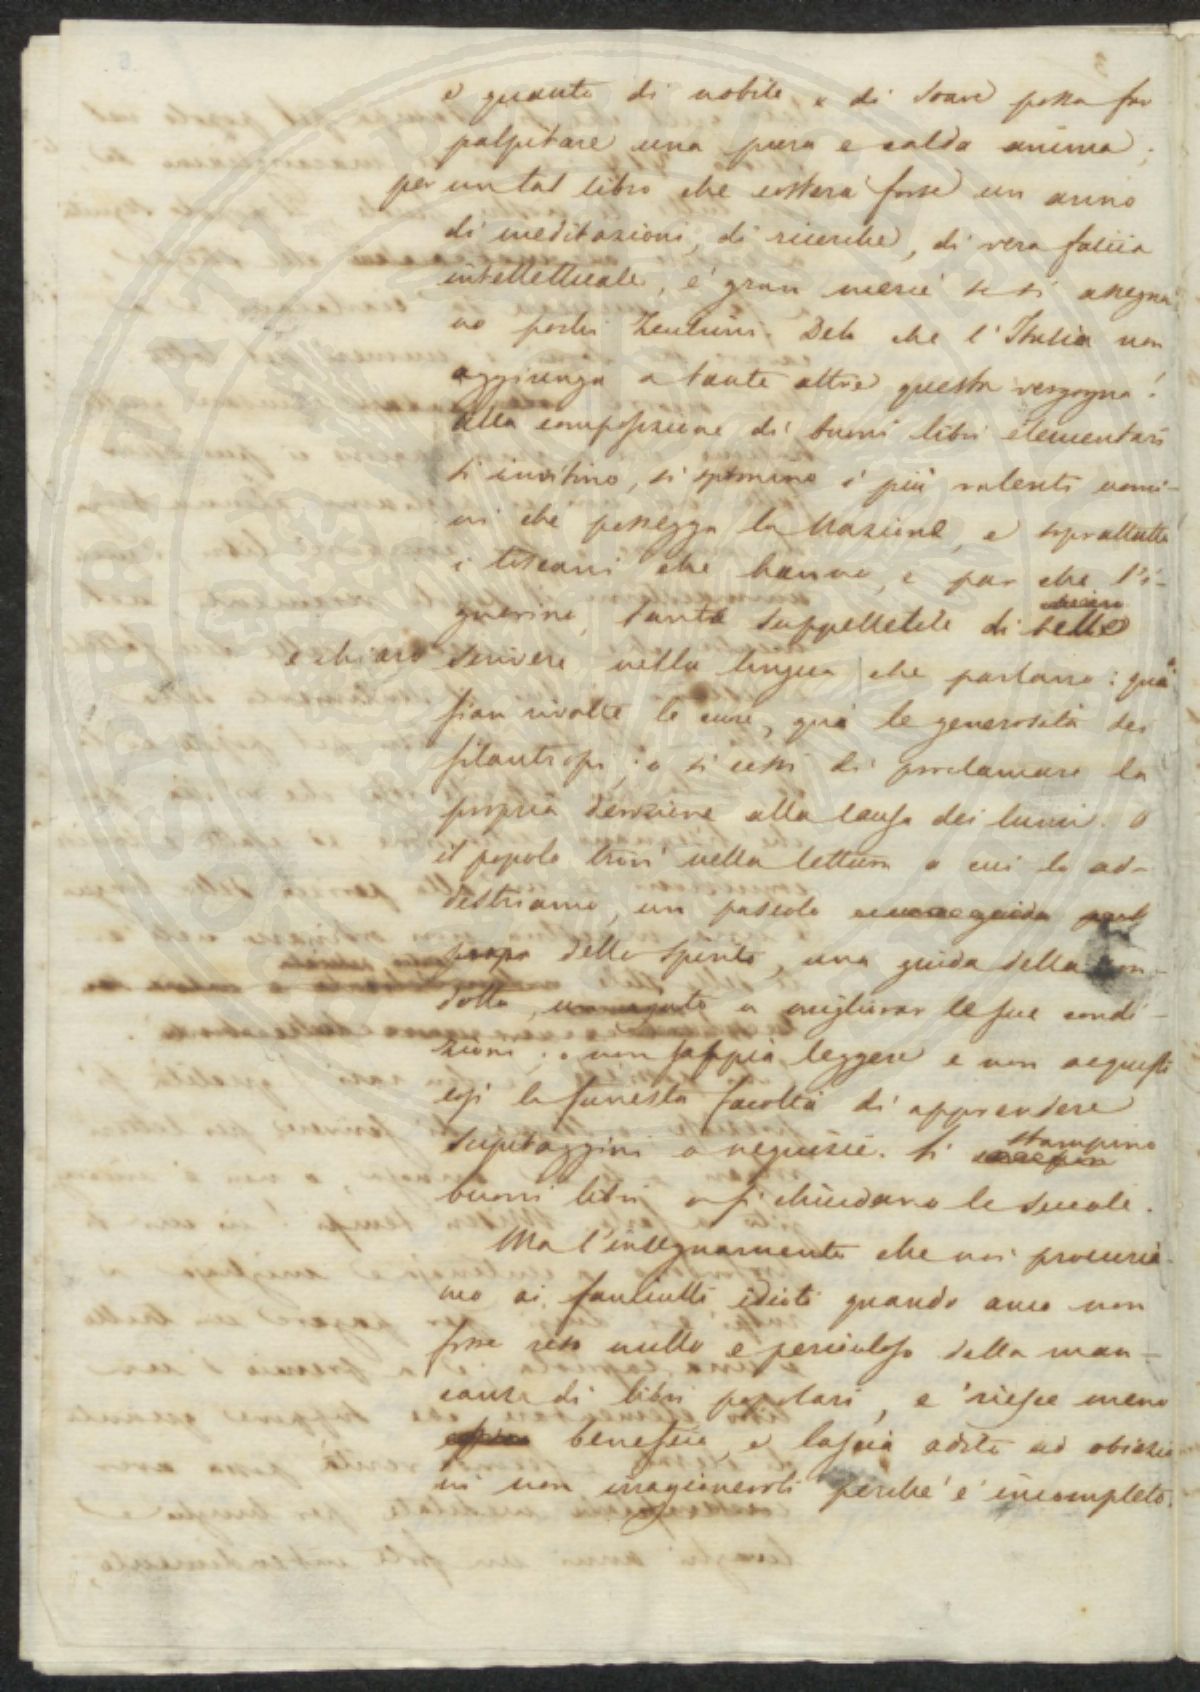 e quanto di nobile e di soave possa far
palpitare una pura e calda anima;
per un tal libro che costerà forse un anno
di meditazioni, di ricerche, di vera fatica
intellettuale, è gran mercè se si assegna
no pochi zecchini. Deh che l'Italia non
aggiunga a tante altre questa vergogna!
Alla composizione di buoni libri elementari
si invitino, si spronino i più valenti uomi-
ni che possegga la Nazione, e soprattutto
i toscani che hanno, e par che l'i-
gnorino, tanta suppelletile di bello
e chiaro scrivere nella lingua che parlano: quà
sian rivolte le cure, quà le generosità dei
filantropi; o si cessi di proclamare la
propria devozione alla causa dei lumi. O
il popolo trovi nella lettura a cui lo ad-
destriamo, un pascolo
dello spirito, una guida della con-
dotta, a migliorar le sue condi-
zioni; o non sappia leggere e non acquisti
così la funesta facoltà di apprendere
scipitaggini o nequizie. Si stampino
buoni libri o si chiudano le scuole.
Ma l'insegnamento che noi procuria-
mo ai fanciulli idioti quando anco non
fosse reso nullo e pericoloso dalla man-
canza di libri popolari, e riesce meno
benefico e lascia adito ad obiezio
ni non irragionevoli perché è incompleto.